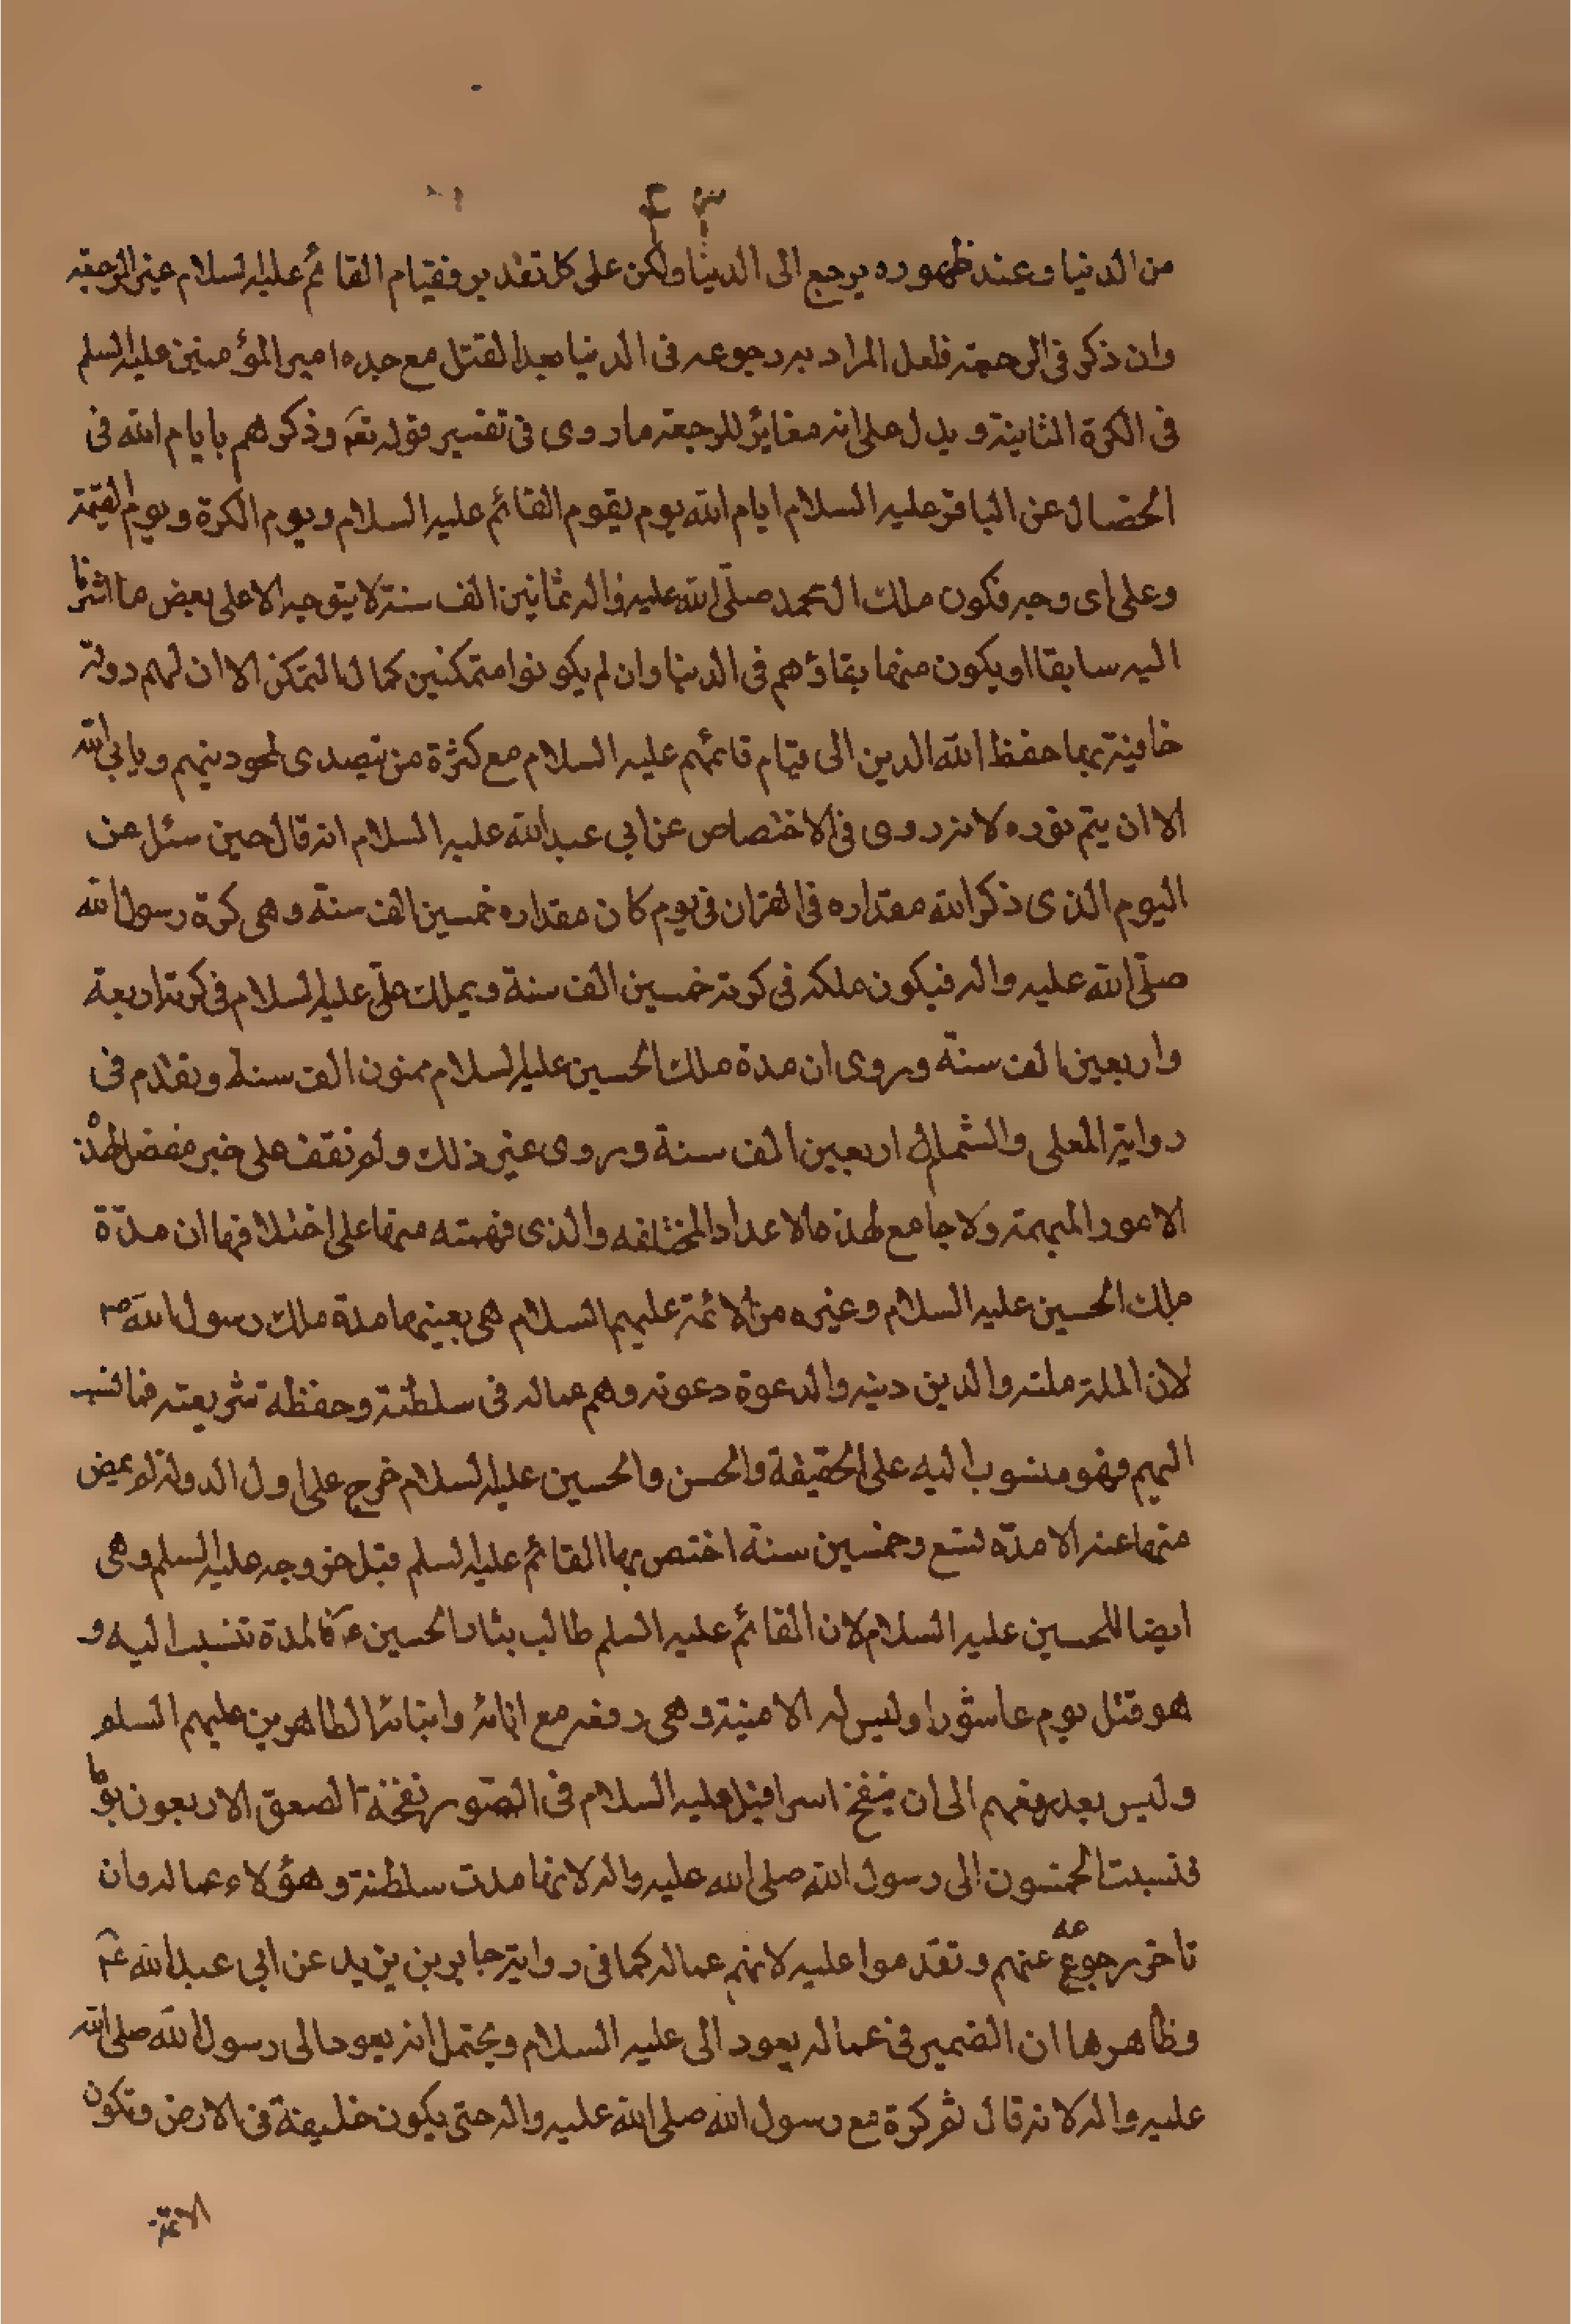 من الدنيا وعند ظهوره يرجع الى الدنيا ولكن على كل تقدير فقيام القائم عليه السلام غير الرجعة
وان ذكر فى الرجعة فلعل المراد به رجوعه فى الدنيا بعد القتل مع جده امير المؤمنين عليه السلم
فى الكرة الثانية ويدل على انه مغاير للرجعة ما روى فى تفسير قوله تعۤ وذكرهم بايام الله فى
الخصال عن الباقر عليه السلام ايام الله يوم يقوم القائم عليه السلام ويوم الكرة ويوم القيمة
وعلى اى وجه فكون ملك ال محمد صلى الله عليه واله ثمانين الف سنة لا يتوجه الا على بعض ما اشرنا
اليه سابقا او يكون منها بقاؤهم فى الدنيا وان لم يكونوا متمكنين كمال التمكن الا ان لهم دولة
خافية بها حفظ الله الدين الى قيام قائمهم عليه السلام مع كثرة من تصدى لمحو دينهم ويابى الله
الا ان يتم نوره لانه روى فى الاختصاص عن ابي عبد الله عليه السلام انه قال حين سئل عن
اليوم الذى ذكر الله مقداره فى القران فى يوم كان مقداره خمسين الف سنة وهى كرة رسول الله
صلى الله عليه واله فيكون ملكه فى كرته خمسين الف سنة ويملك على عليه السلام فى كرته اربعة
واربعين الف سنة وروى ان مدة ملك الحسين عليه السلام خمسون الف سنة وتقدم فى
رواية المعلى والشمالى اربعين الف سنة وروى غير ذلك ولم نقف على خبر مفصل لهذه
الامور المبهمة ولا جامع لهذه الاعداد المختلفه والذى فهمته منها على اختلافها ان مدة
ملك الحسين عليه السلام وغيره من الائمة عليهم السلام هى بعينها مدة ملك رسول الله صۤ
لان الملة ملته والدين دينه والدعوة دعوته وهم عماله فى سلطنته وحفظة شريعته فما نسب
اليهم فهو منسوب اليه على الحقيقة والحسن والحسين عليه السلام خرج على اول الدولة لم يمض
منها عنه الا مدة تسع وخمسين سنة اختص بها القائم عليه السلم قبل خروجه عليه السلم وهى
ايضا للحسين عليه السلام لان القائم عليه السلم طالب بثار الحسين عۤ فالمدة تنسب اليه و
هو قتل يوم عاشورا وليس له الا منية وهى رفعه مع ابائه وابنائه الطاهرين عليهم السلم
وليس بعد رفعهم الى ان ينفخ اسرافيل عليه السلام فى الصور نفخة الصعق الا اربعون يوما
فنسبت الخمسون الى رسول الله صلى الله عليه واله لانها مدت سلطنته وهؤلاء عماله وان
تاخر رجوعه عنهم وتقدموا عليه لانهم عماله كما فى رواية جابر بن يزيد عن ابي عبد الله عۤ
وظاهرها ان الضمير فى عماله يعود الى عليه السلام ويحتمل انه يعود الى رسول الله صلى الله
عليه واله لانه قال ثم كرة مع رسول الله صلى الله عليه واله حتى يكون خليفة فى الارض وتكون
الائمة